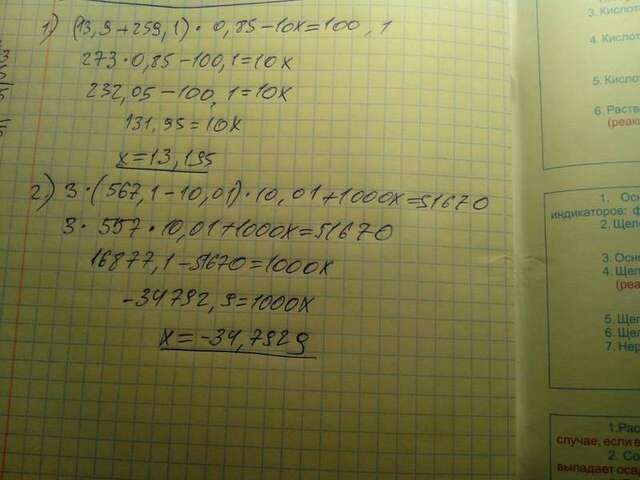 1) (13,9+259,1)·0,85-10x=100,1
273·0,85-100,1=10x
232,05-100,1=10x
131,95=10x
x=13,195
2) 3·(567,1-10,01)·10,01+1000x=51670
3·557·10,01+1000x=51670
16877,1-51670=1000x
-34792,9=1000x
x=-34,7929
3. Кислот
4. Кислот
5. Кисло
6. Раств
(реак
1. Осн
индикаторов: ф
2. Щело
3. Осно
4. Щел
(реа
5. Щел
6. Щел
7. Нер
1.Рас
случае, если в
2. Со
выпадает оса